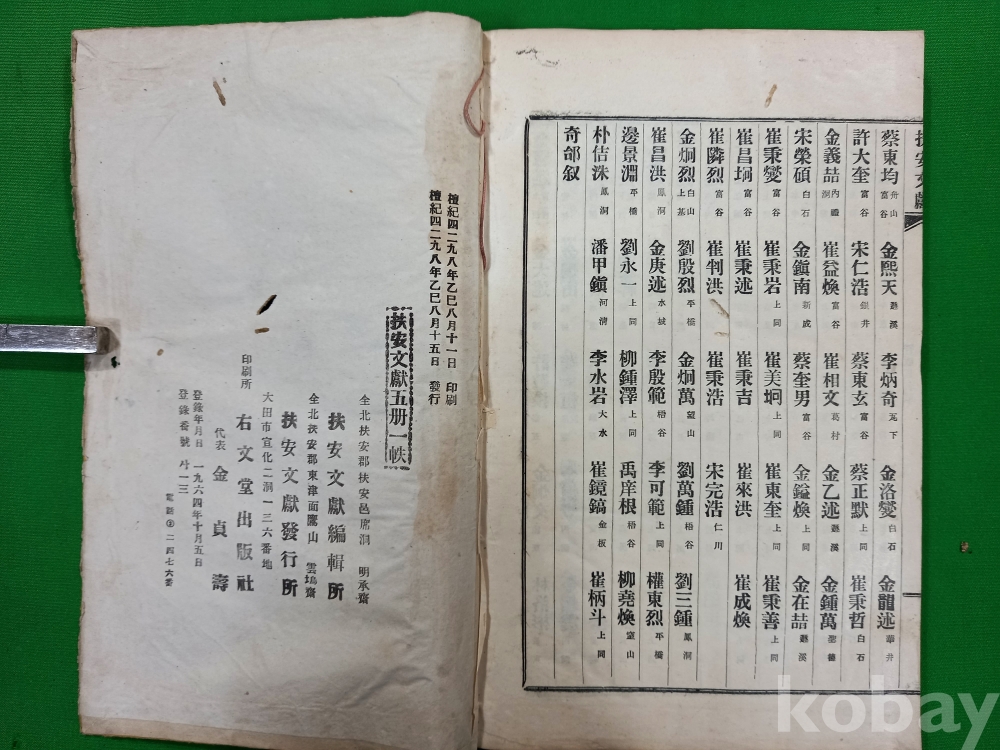 扶安文獻
蔡東均 舟山 富谷 金熙天 李炳奇 瓦下 金洛燮 白石 金龍述 華井
許大奎 富谷 宋仁浩 銀井 蔡東玄 富谷 蔡正默 上同 崔秉哲 白石
金義喆 崔益煥 富谷 崔相文 葛村 金乙述 金鍾萬
宋榮碩 白石 金鎭南 新成 蔡奎男 富谷 金鎰煥 上同 金在喆
崔秉燮 富谷 崔秉岩 上同 崔美坰 上同 崔東奎 上同 崔秉善 上同
崔昌坰 富谷 崔秉述 崔秉吉 上同 崔來洪 崔成煥
崔隣烈 富谷 崔判洪 崔秉浩 宋完浩 仁川
金炯烈 白山 上基 劉殷烈 平橋 金炯萬 望山 劉萬鍾 梧谷 劉三鍾 鳳洞
崔昌洪 鳳洞 金庚述 水城 李殷範 梧谷 李可範 上同 權東烈 平橋
邊景淵 平橋 劉永一 上同 柳鍾澤 上同 禹庠根 梧谷 柳堯煥
朴佶洙 鳳洞 潘甲鎭 河淸 李水岩 大水 崔鏡鎬 金板 崔柄斗 上同
奇郃叙
檀紀四二九八年乙巳八月十一日 印刷
檀紀四二九八年乙巳八月十五日 發行
扶安文獻五册一帙
全北扶安郡扶安邑席洞 明承齋
扶安文獻編輯所
全北扶安郡東津面鷹山 雲塢齋
扶安文獻發行所
大田市宣化二洞一三六番地
印刷所 右文堂出版社
代表 金貞壽
登錄年月日 一九六四年十月五日
登錄番號 카一三
電話②二四七六番
kobay